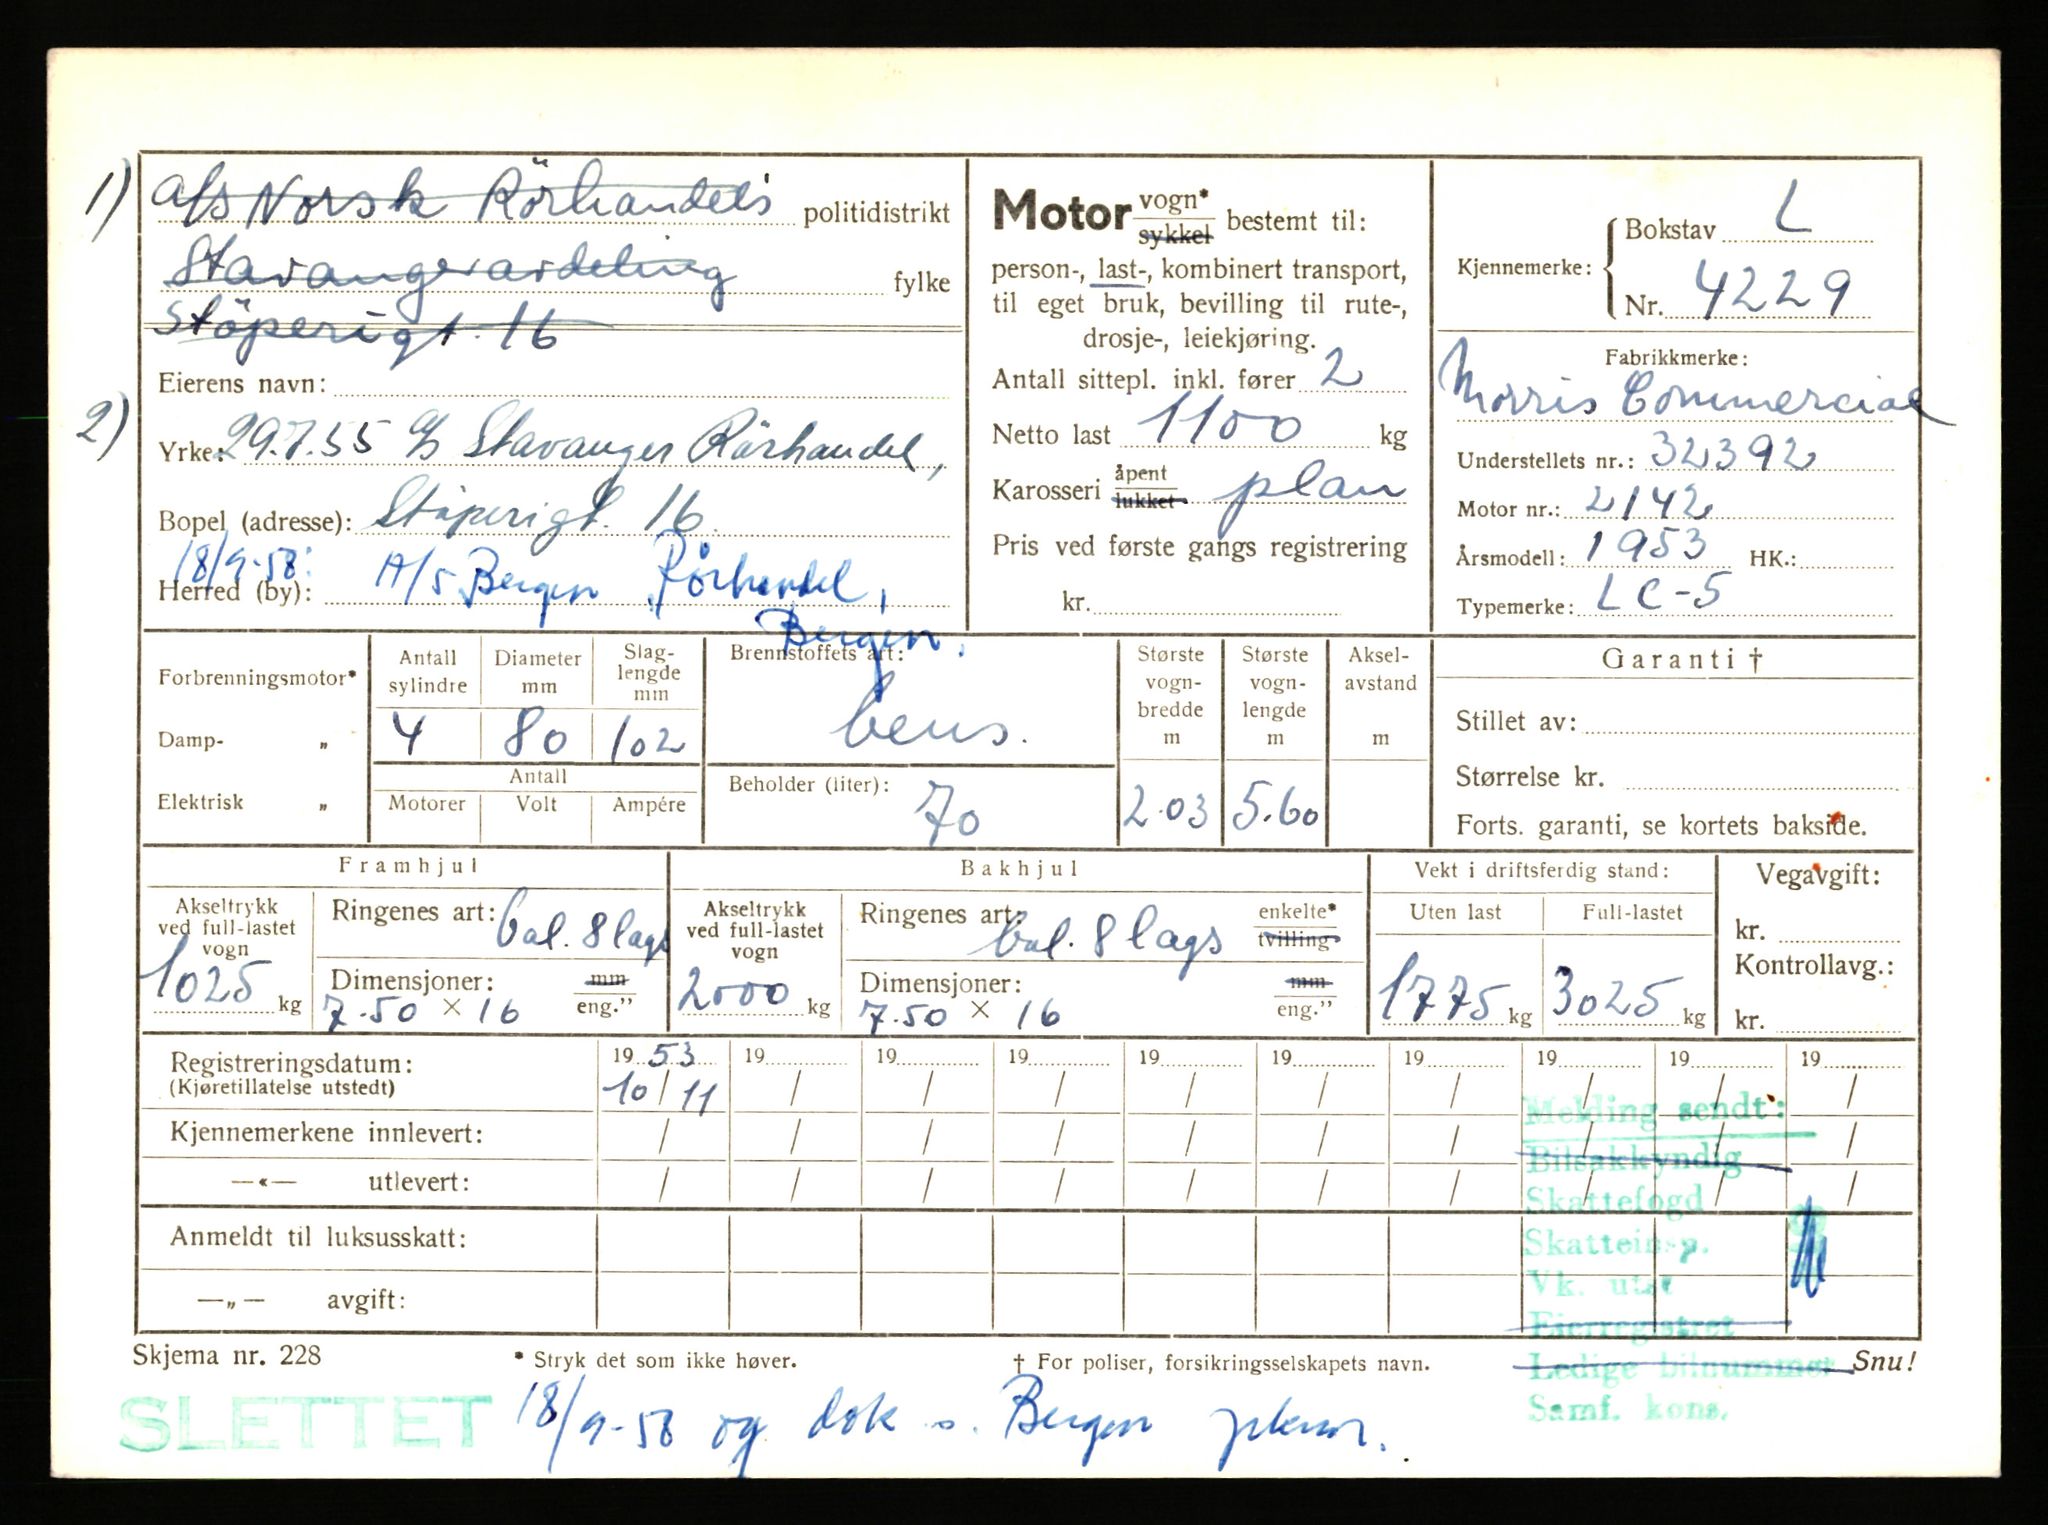 1) A/s Norsk Rörhandels politidistrikt
Stavangeravdeling fylke
Stöperigt. 16
Eierens navn:
2) Yrke: 29.7.55 A/S Stavanger Rörhandel,
Bopel (adresse): Stöperigt. 16.
18/9-58:
Herred (by): A/S Bergen Rörhandel,
Bergen.
Motor vogn*
sykkel bestemt til:
person-, last-, kombinert transport,
til eget bruk, bevilling til rute-,
drosje-, leiekjøring.
Antall sittepl. inkl. fører 2
Netto last 1100 kg
Karosseri åpent
lukket plan
Pris ved første gangs registrering
kr.
Kjennemerke: Bokstav L
Nr. 4229
Fabrikkmerke:
Morris Commercial
Understellets nr.: 32392
Motor nr.: 2142
Årsmodell: 1953 HK.:
Typemerke: LC-5
Forbrenningsmotor*
Damp- „
Elektrisk „
Antall sylindre 4
Diameter mm 80
Slag-lengde mm 102
Antall
Motorer Volt Ampére
Brennstoffets art:
bens.
Beholder (liter):
70
Største vogn-bredde m 2.03
Største vogn-lengde m 5.60
Aksel-avstand m
Garanti †
Stillet av:
Størrelse kr.
Forts. garanti, se kortets bakside.
Framhjul
Akseltrykk ved full-lastet vogn
1025 kg
Ringenes art: bal. 8 lags
Dimensjoner: mm
7.50 × 16 eng.”
Bakhjul
Akseltrykk ved full-lastet vogn
2000 kg
Ringenes art: bal. 8 lags enkelte*
tvilling
Dimensjoner: mm
7.50 × 16 eng.”
Vekt i driftsferdig stand:
Uten last Full-lastet
1775 kg 3025 kg
Vegavgift:
kr.
Kontrollavg.:
kr.
Registreringsdatum: 19 53 19 19 19 19 19 19 19 19 19
(Kjøretillatelse utstedt) 10/11 / / / / / / / / /
Kjennemerkene innlevert: / / / / / / / / / /
—«— utlevert: / / / / / / / / / /
Anmeldt til luksusskatt:
—„— avgift:
Melding sendt:
Bilsakkyndig
Skattefogd
Skatteinsp.
Vk. utst
Eierregistret
Ledige bilnummer
Samf. kons.
Skjema nr. 228 * Stryk det som ikke høver. † For poliser, forsikringsselskapets navn. Snu!
SLETTET 18/9-58 og dok s. Bergen